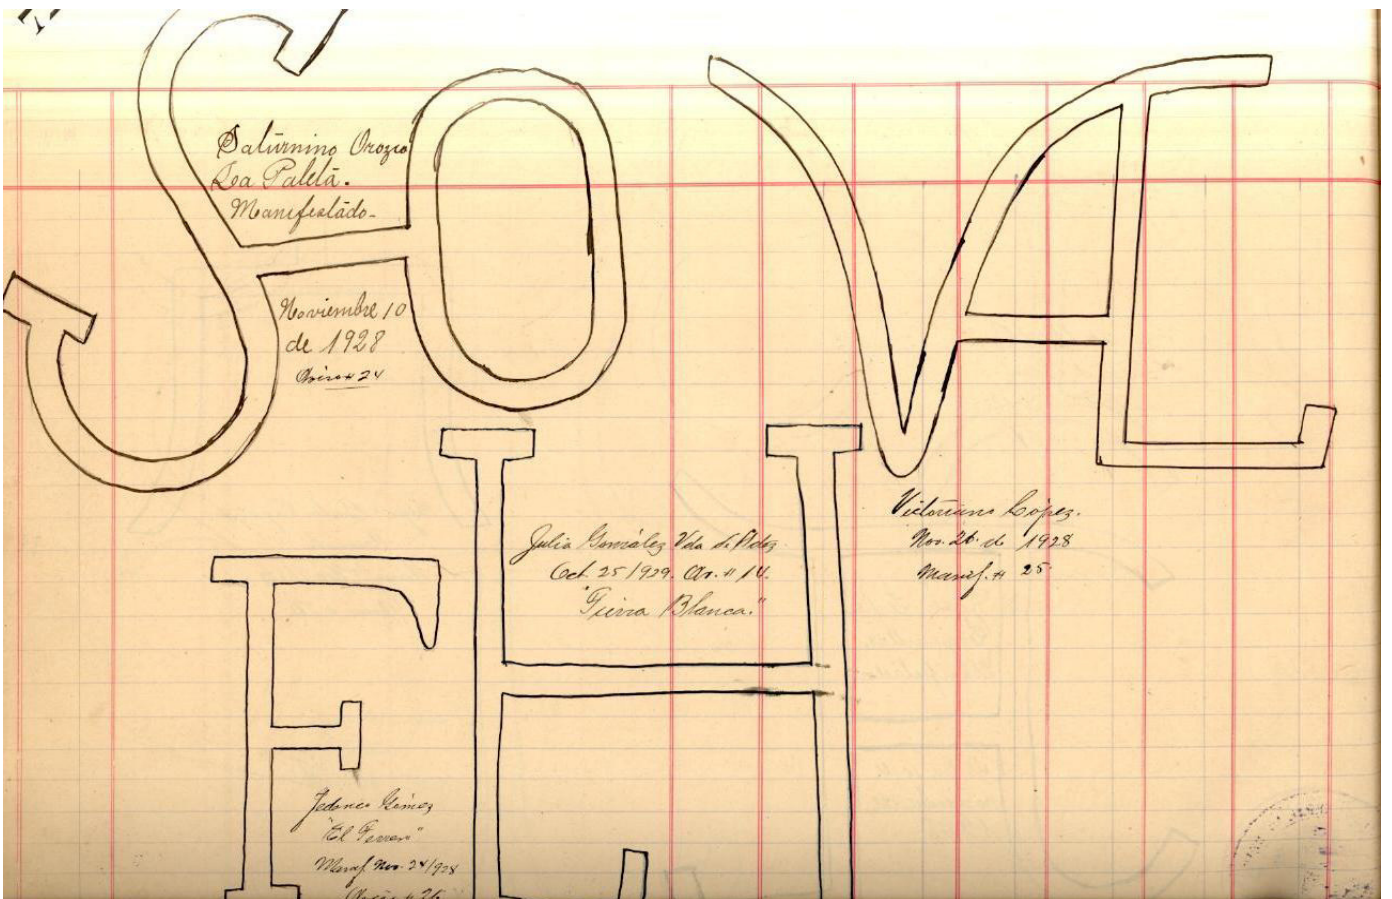 SO
Saturnino Orozco
La Paleta.
Manifestado-
Noviembre 10
de 1928
Aviso # 24
VAL
Victoriano López.
Nov. 26 de 1928
Manif. # 25
H
Julia González Vda de
Oct. 25/1929. Av. # 14.
"Tierra Blanca."
F
Gómez
"El
Manif Nov. 24/928
Aviso # 26